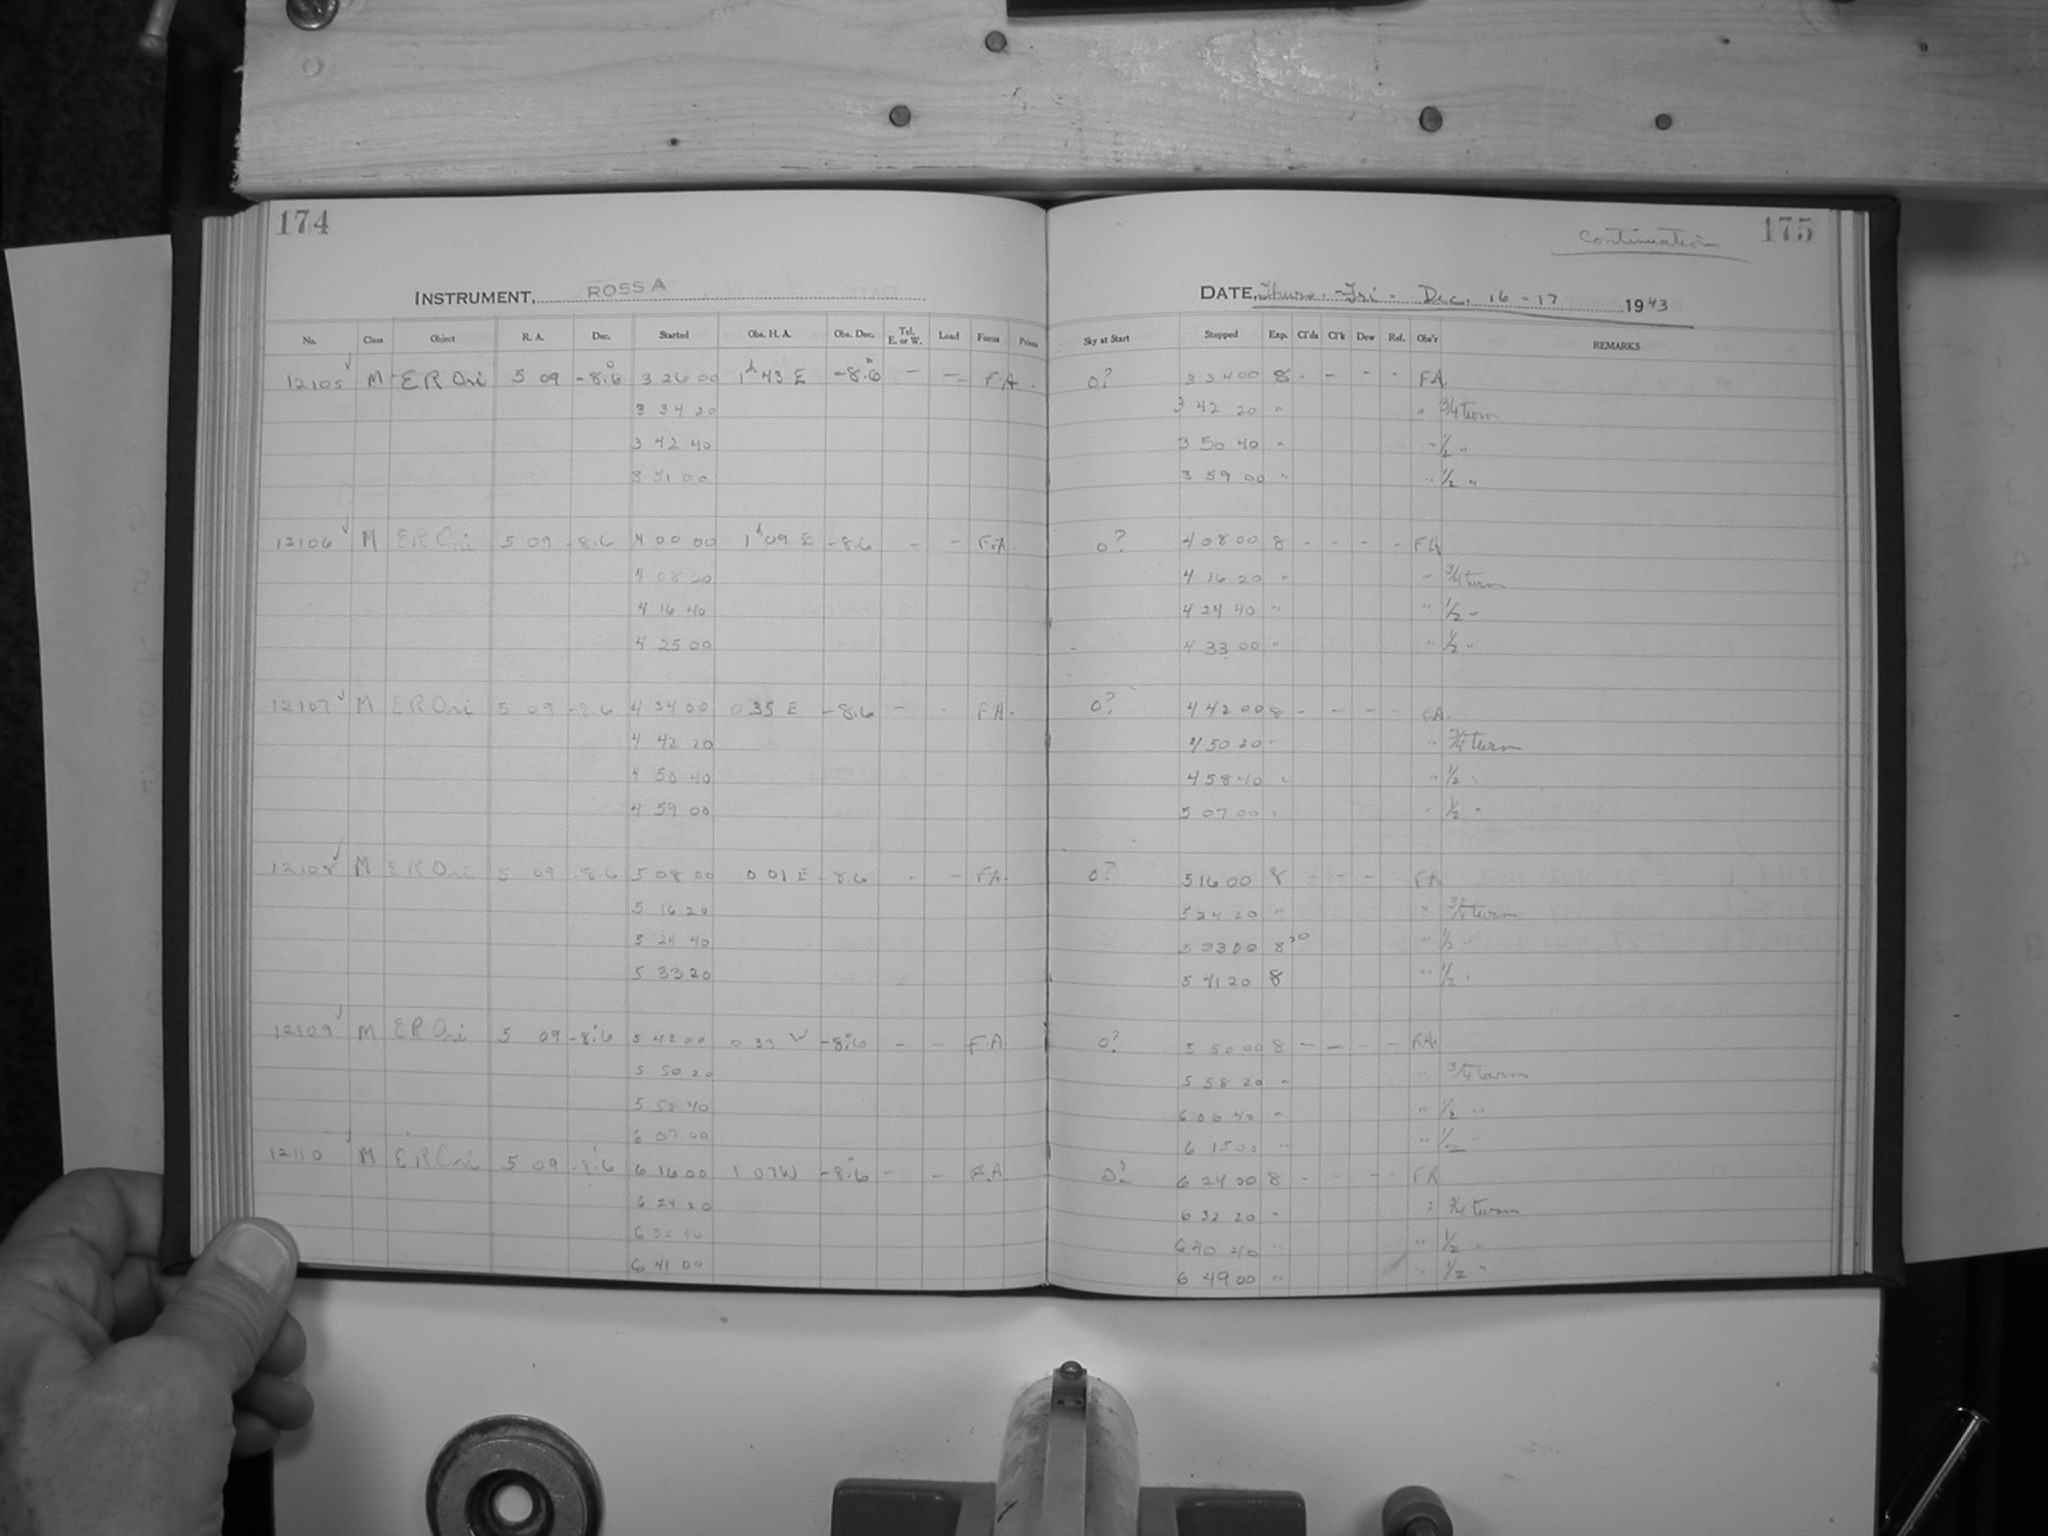 174
INSTRUMENT, ROSS A
No. Class Object R. A. Dec. Started Obs. H. A. Obs. Dec. Tel. E. or W. Load Focus Prism
12105 M ER Ori 5 09 -8.6 3 26 00 1h 43 E -8.6 - - F.A.
3 34 20
3 42 40
3 51 00
12106 M ER Ori 5 09 -8.6 4 00 00 1h 09 E -8.6 - - F.A.
4 08 20
4 16 40
4 25 00
12107 M ER Ori 5 09 -8.6 4 34 00 0 35 E -8.6 - - F A.
4 42 20
4 50 40
4 59 00
12108 M ER Ori 5 09 -8.6 5 08 00 0 01 E -8.6 - - F A.
5 16 20
5 24 40
5 33 20
12109 M ER Ori 5 09 -8.6 5 42 00 0 33 W -8.6 - - F.A.
5 50 20
5 58 40
6 07 00
12110 M ER Ori 5 09 -8.6 6 16 00 1 07 W -8.6 - - F.A.
6 24 20
6 32 40
6 41 00
Continuation 175
DATE, Thurs. - Fri. Dec. 16 - 17 1943
Sky at Start Stopped Exp. Cl'ds Cl'k Dew Ref. Obs'r REMARKS
0? 3 34 00 8 - - - - F.A.
3 42 20 " " 3/4 turn
3 50 40 " " 1/2 "
3 59 00 " " 1/2 "
0? 4 08 00 8 - - - - F A
4 16 20 " " 3/4 turn
4 24 40 " " 1/2 "
4 33 00 " " 1/2 "
0? 4 42 00 8 - - - - F.A.
4 50 20 " " 3/4 turn
4 58 40 " " 1/2 "
5 07 00 " " 1/2 "
0? 5 16 00 8 - - - - F A
5 24 20 " " 3/4 turn
5 33 00 8 20 " 1/2 "
5 41 20 8 " 1/2 "
0? 5 50 00 8 - - - - F.A.
5 58 20 " " 3/4 turn
6 06 40 " " 1/2 "
6 15 00 " " 1/2 "
0? 6 24 00 8 - - - - F A
6 32 20 " " 3/4 turn
6 40 40 " " 1/2 "
6 49 00 " " 1/2 "